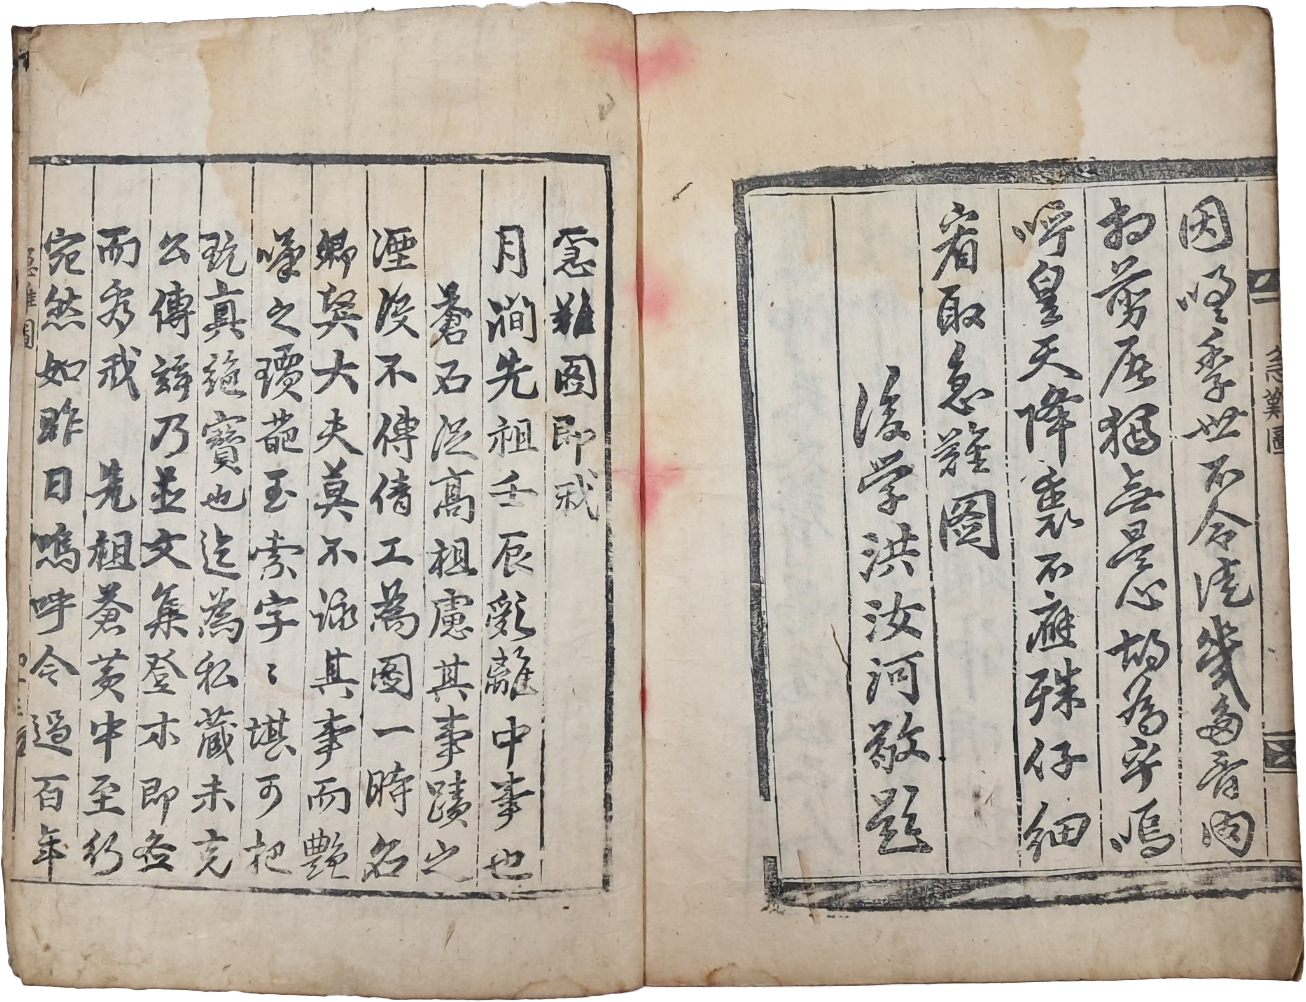 急難圖
因嗟季世不令徒幾多骨肉
相剪屠獨無是心胡為乎嗚
呼皇天降衷不應殊仔細
看取急難圖
後學洪汝河敬題
急難圖即我
月澗先祖壬辰亂離中事也
蒼石從高祖慮其事蹟之
湮沒不傳倩工為圖一時名
卿大夫莫不詠其事而艶
嘆之瓊葩玉索字〻堪可把
玩真絶寶也迄為私藏未克
公傳玆乃並文集登木即
而我 先祖蒼黃中至行
宛然如昨日嗚呼今過百年
急難圖